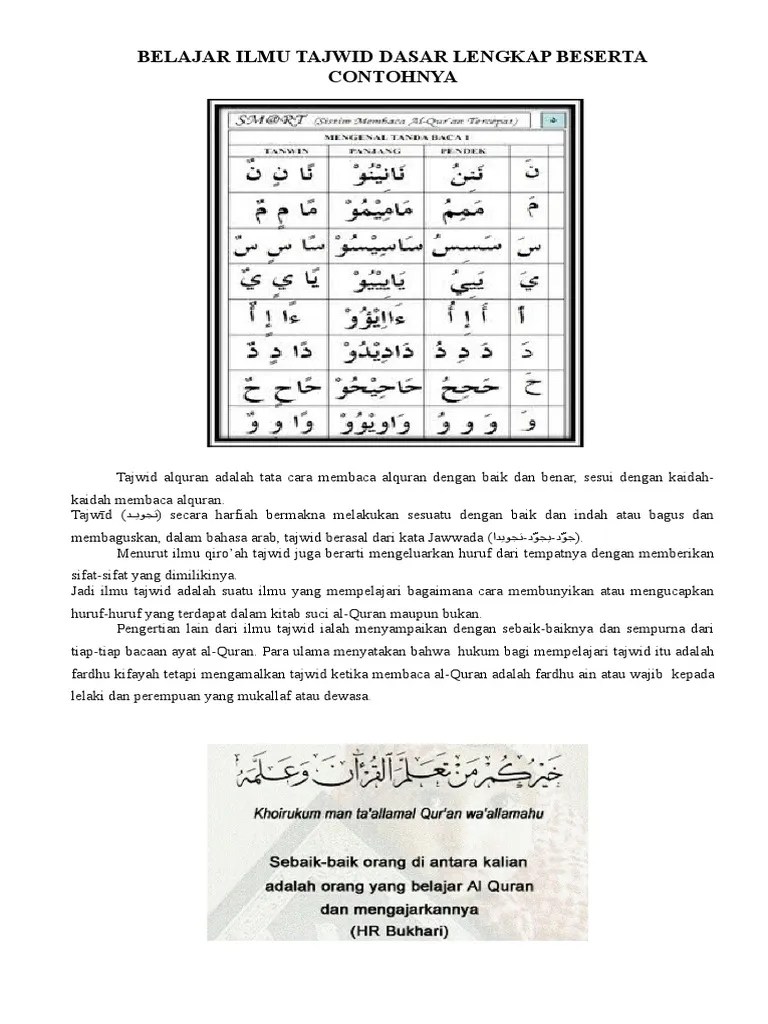 BELAJAR ILMU TAJWID DASAR LENGKAP BESERTA
CONTOHNYA
SM@RT (Sistim Membaca Al-Qur'an Tercepat)
MENGENAL TANDA BACA 1
TANWIN PANJANG PENDEK
نًا نٍ نٌ نَانِيْنُوْ نَنِنُ نَ
مًا مٍ مٌ مَامِيْمُوْ مَمِمُ مَ
سًا سٍ سٌ سَاسِيْسُوْ سَسِسُ سَ
يًا يٍ يٌ يَايِيْيُوْ يَيِيُ يَ
ءًا إٍ أٌ ءَاإِيْؤُوْ أَ إِ أُ أَ
دًا دٍ دٌ دَادِيْدُوْ دَ دِ دُ دَ
حًا حٍ حٌ حَاحِيْحُوْ حَحِحُ حَ
وًا وٍ وٌ وَاوِيْوُوْ وَ وِ وُ وَ
Tajwid alquran adalah tata cara membaca alquran dengan baik dan benar, sesui dengan kaidah-
kaidah membaca alquran.
Tajwīd (تجويد) secara harfiah bermakna melakukan sesuatu dengan baik dan indah atau bagus dan
membaguskan, dalam bahasa arab, tajwid berasal dari kata Jawwada (جوّد-يجوّد-تجويدا).
Menurut ilmu qiro’ah tajwid juga berarti mengeluarkan huruf dari tempatnya dengan memberikan
sifat-sifat yang dimilikinya.
Jadi ilmu tajwid adalah suatu ilmu yang mempelajari bagaimana cara membunyikan atau mengucapkan
huruf-huruf yang terdapat dalam kitab suci al-Quran maupun bukan.
Pengertian lain dari ilmu tajwid ialah menyampaikan dengan sebaik-baiknya dan sempurna dari
tiap-tiap bacaan ayat al-Quran. Para ulama menyatakan bahwa hukum bagi mempelajari tajwid itu adalah
fardhu kifayah tetapi mengamalkan tajwid ketika membaca al-Quran adalah fardhu ain atau wajib kepada
lelaki dan perempuan yang mukallaf atau dewasa.
خَيْرُكُمْ مَنْ تَعَلَّمَ الْقُرْءَانَ وَعَلَّمَهُ
Khoirukum man ta'allamal Qur'an wa'allamahu
Sebaik-baik orang di antara kalian
adalah orang yang belajar Al Quran
dan mengajarkannya
(HR Bukhari)